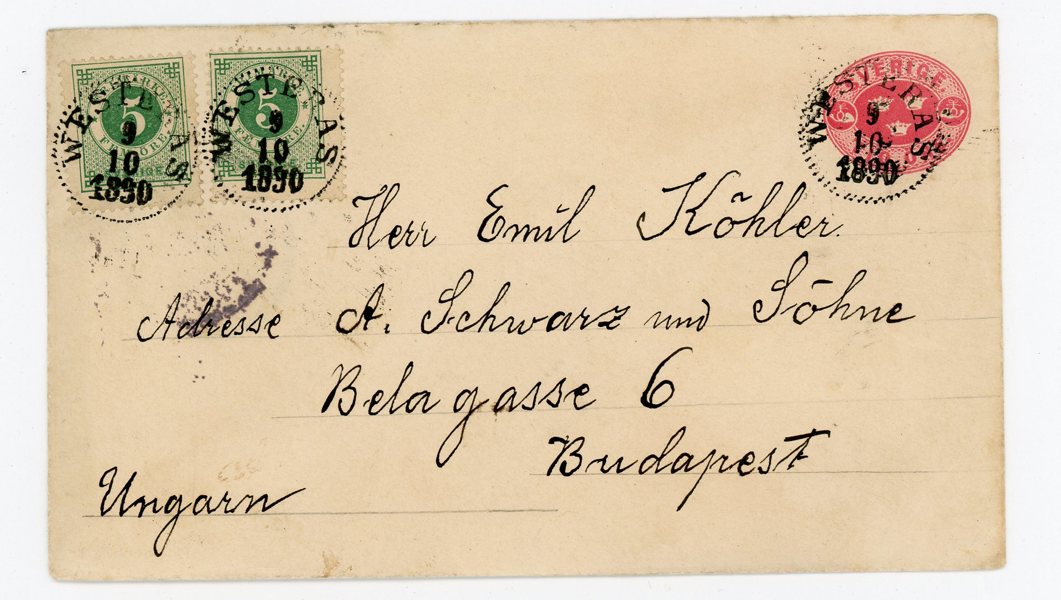 5
FEM ÖRE
WESTERAS
9
10
1890
5
WESTERAS
9
10
1890
SVERIGE
WESTERAS
9
10
1890
Herr Emil Köhler.
Adresse A. Schwarz und Söhne
Belagasse 6
Budapest
Ungarn